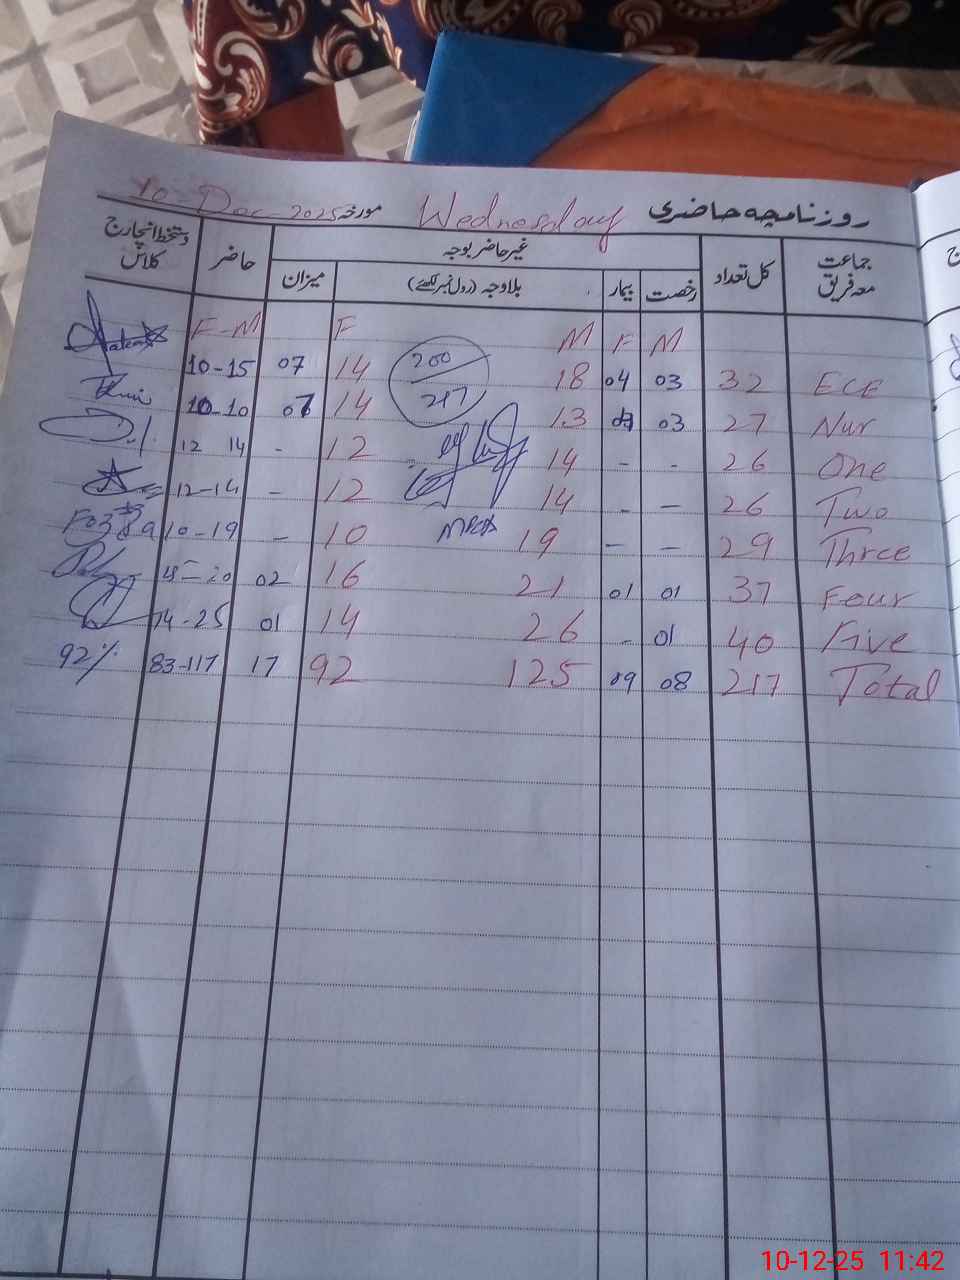 روزنامچہ حاضری Wednesday مورخہ 10-Dec-2025
جماعت معہ فریق کل تعداد غیر حاضر بوجہ حاضر دستخط انچارج کلاس
رخصت بیمار بلاوجہ (رول نمبر لکھئے) میزان
M F M F F-M
ECE 32 03 04 18 14 07 10-15
200
217
Nur 27 03 13 14 07 10-10
One 26 - - 14 12 - 12 14
Two 26 - - 14 12 - 12-14
Three 29 - - 19 10 - 10-19
Four 37 01 01 21 16 02 20
Five 40 01 - 26 14 01 14-25
Total 217 08 09 125 92 17 83-117 92%
10-12-25 11:42